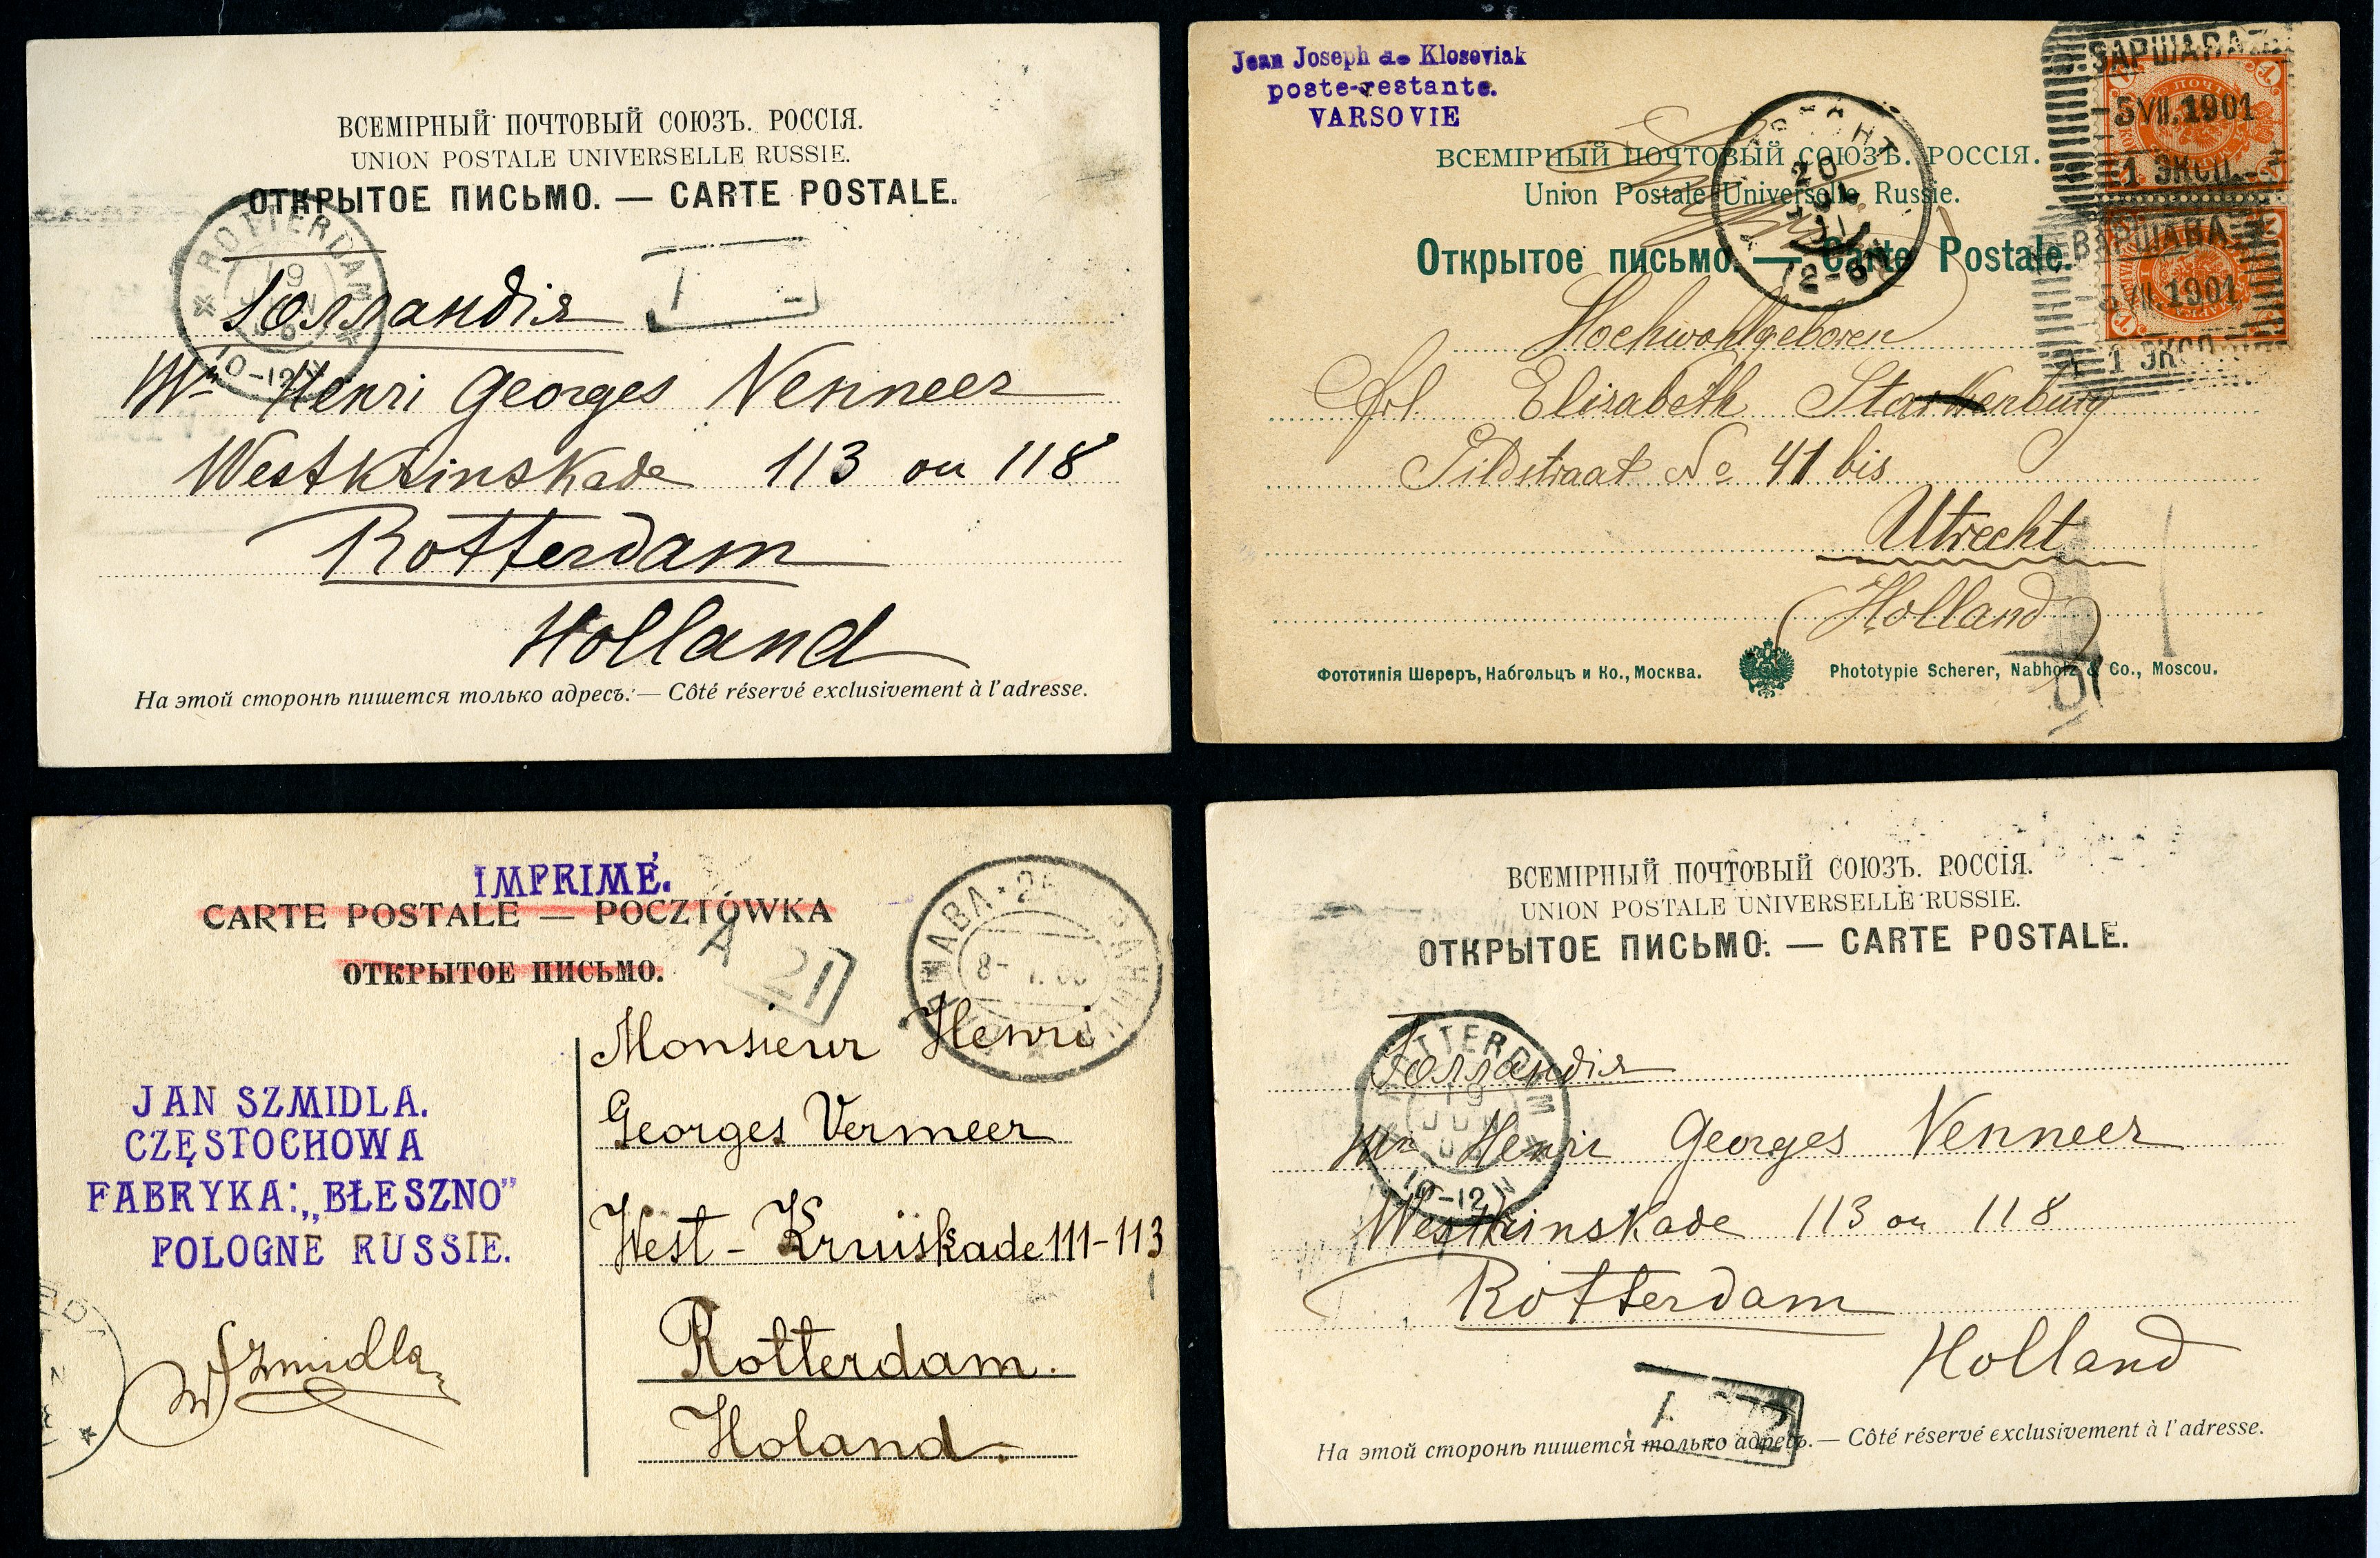 ВСЕМІРНЫЙ ПОЧТОВЫЙ СОЮЗЪ. РОССІЯ.
UNION POSTALE UNIVERSELLE RUSSIE.
ОТКРЫТОЕ ПИСЬМО. — CARTE POSTALE.
ROTTERDAM
19
10-12
Голландія
Mr Henri Georges Venneer
Westkrinskade 113 ou 118
Rotterdam
Holland
На этой сторонѣ пишется только адресъ. — Côté réservé exclusivement à l'adresse.
Jean Joseph de Kloseviak
poste-restante.
VARSOVIE
ВАРШАВА
5 VII. 1901
1 ЭКСП.
ВАРШАВА
5 VII. 1901
1 ЭКСП.
20
12-6
ВСЕМІРНЫЙ ПОЧТОВЫЙ СОЮЗЪ. РОССІЯ.
Union Postale Universelle Russie.
Открытое письмо. — Carte Postale.
Hochwohlgeboren
Frl. Elisabeth Starkenburg
Gildstraat No 41 bis
Utrecht
Holland
Фототипія Шереръ, Набгольцъ и Ко., Москва. Phototypie Scherer, Nabholz & Co., Moscou.
IMPRIMÉ.
CARTE POSTALE — POCZTÓWKA
ОТКРЫТОЕ ПИСЬМО.
A 21
JAN SZMIDLA.
CZĘSTOCHOWA
FABRYKA: „BŁESZNO”
POLOGNE RUSSIE.
Szmidla
Monsieur Henri
Georges Vermeer
West - Kruiskade 111-113
Rotterdam.
Holand.
ВСЕМІРНЫЙ ПОЧТОВЫЙ СОЮЗЪ. РОССІЯ.
UNION POSTALE UNIVERSELLE RUSSIE.
ОТКРЫТОЕ ПИСЬМО. — CARTE POSTALE.
ROTTERDAM
19
10-12
Голландія
Mr Henri Georges Venneer
Westkrinskade 113 ou 118
Rotterdam
Holland
На этой сторонѣ пишется только адресъ. — Côté réservé exclusivement à l'adresse.